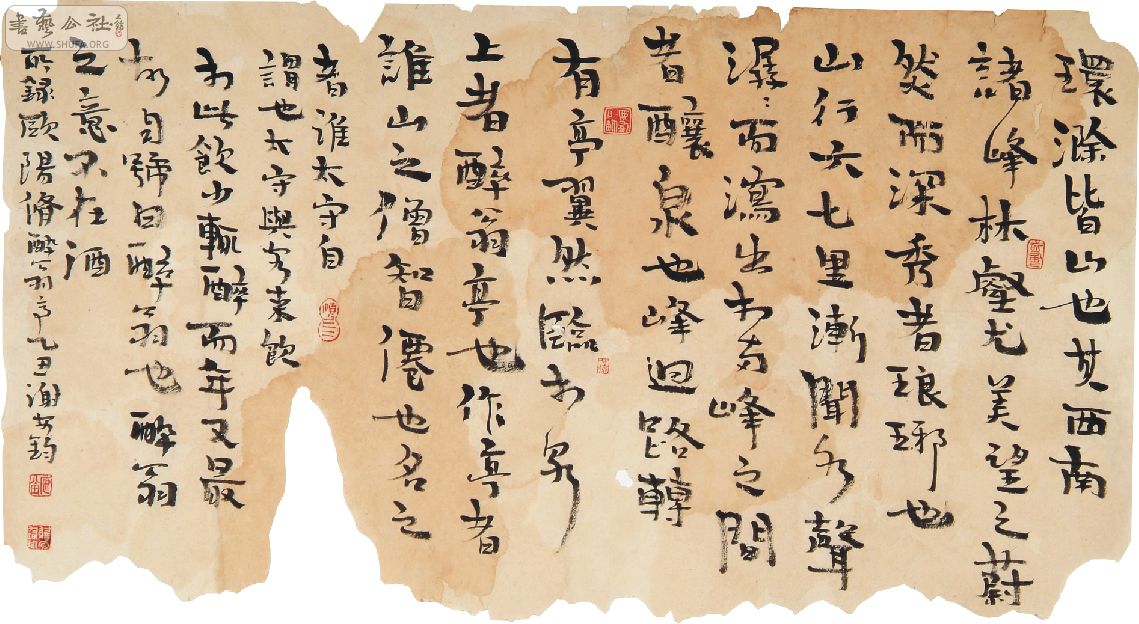 書藝公社
WWW.SHUFA.ORG
環滁皆山也其西南
諸峰林壑尤美望之蔚
然而深秀者琅琊也
山行六七里漸聞水聲
潺〻而瀉出於兩峰之間
者釀泉也峰迴路轉
有亭翼然臨於泉
上者醉翁亭也作亭者
誰山之僧智僊也名之
者誰太守自
謂也太守與客來飲
於此飲少輒醉而年又最
故自號曰醉翁也醉翁
之意不在酒
節錄歐陽脩醉翁亭乙丑謝安鈞